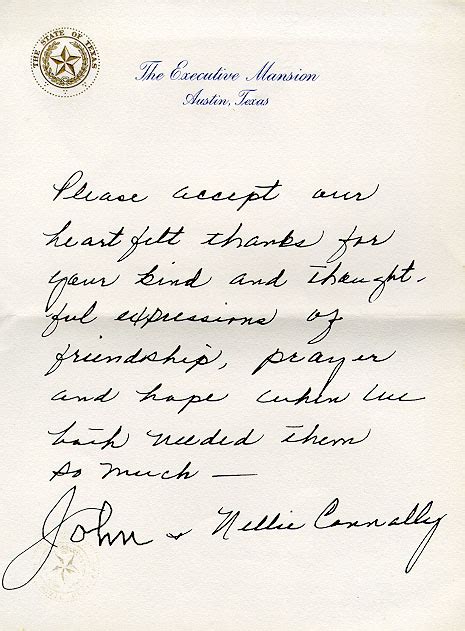 THE STATE OF TEXAS
The Executive Mansion
Austin, Texas
Please accept our
heartfelt thanks for
your kind and thought-
ful expressions of
friendship, prayer
and hope when we
both needed them
so much —
John & Nellie Connally